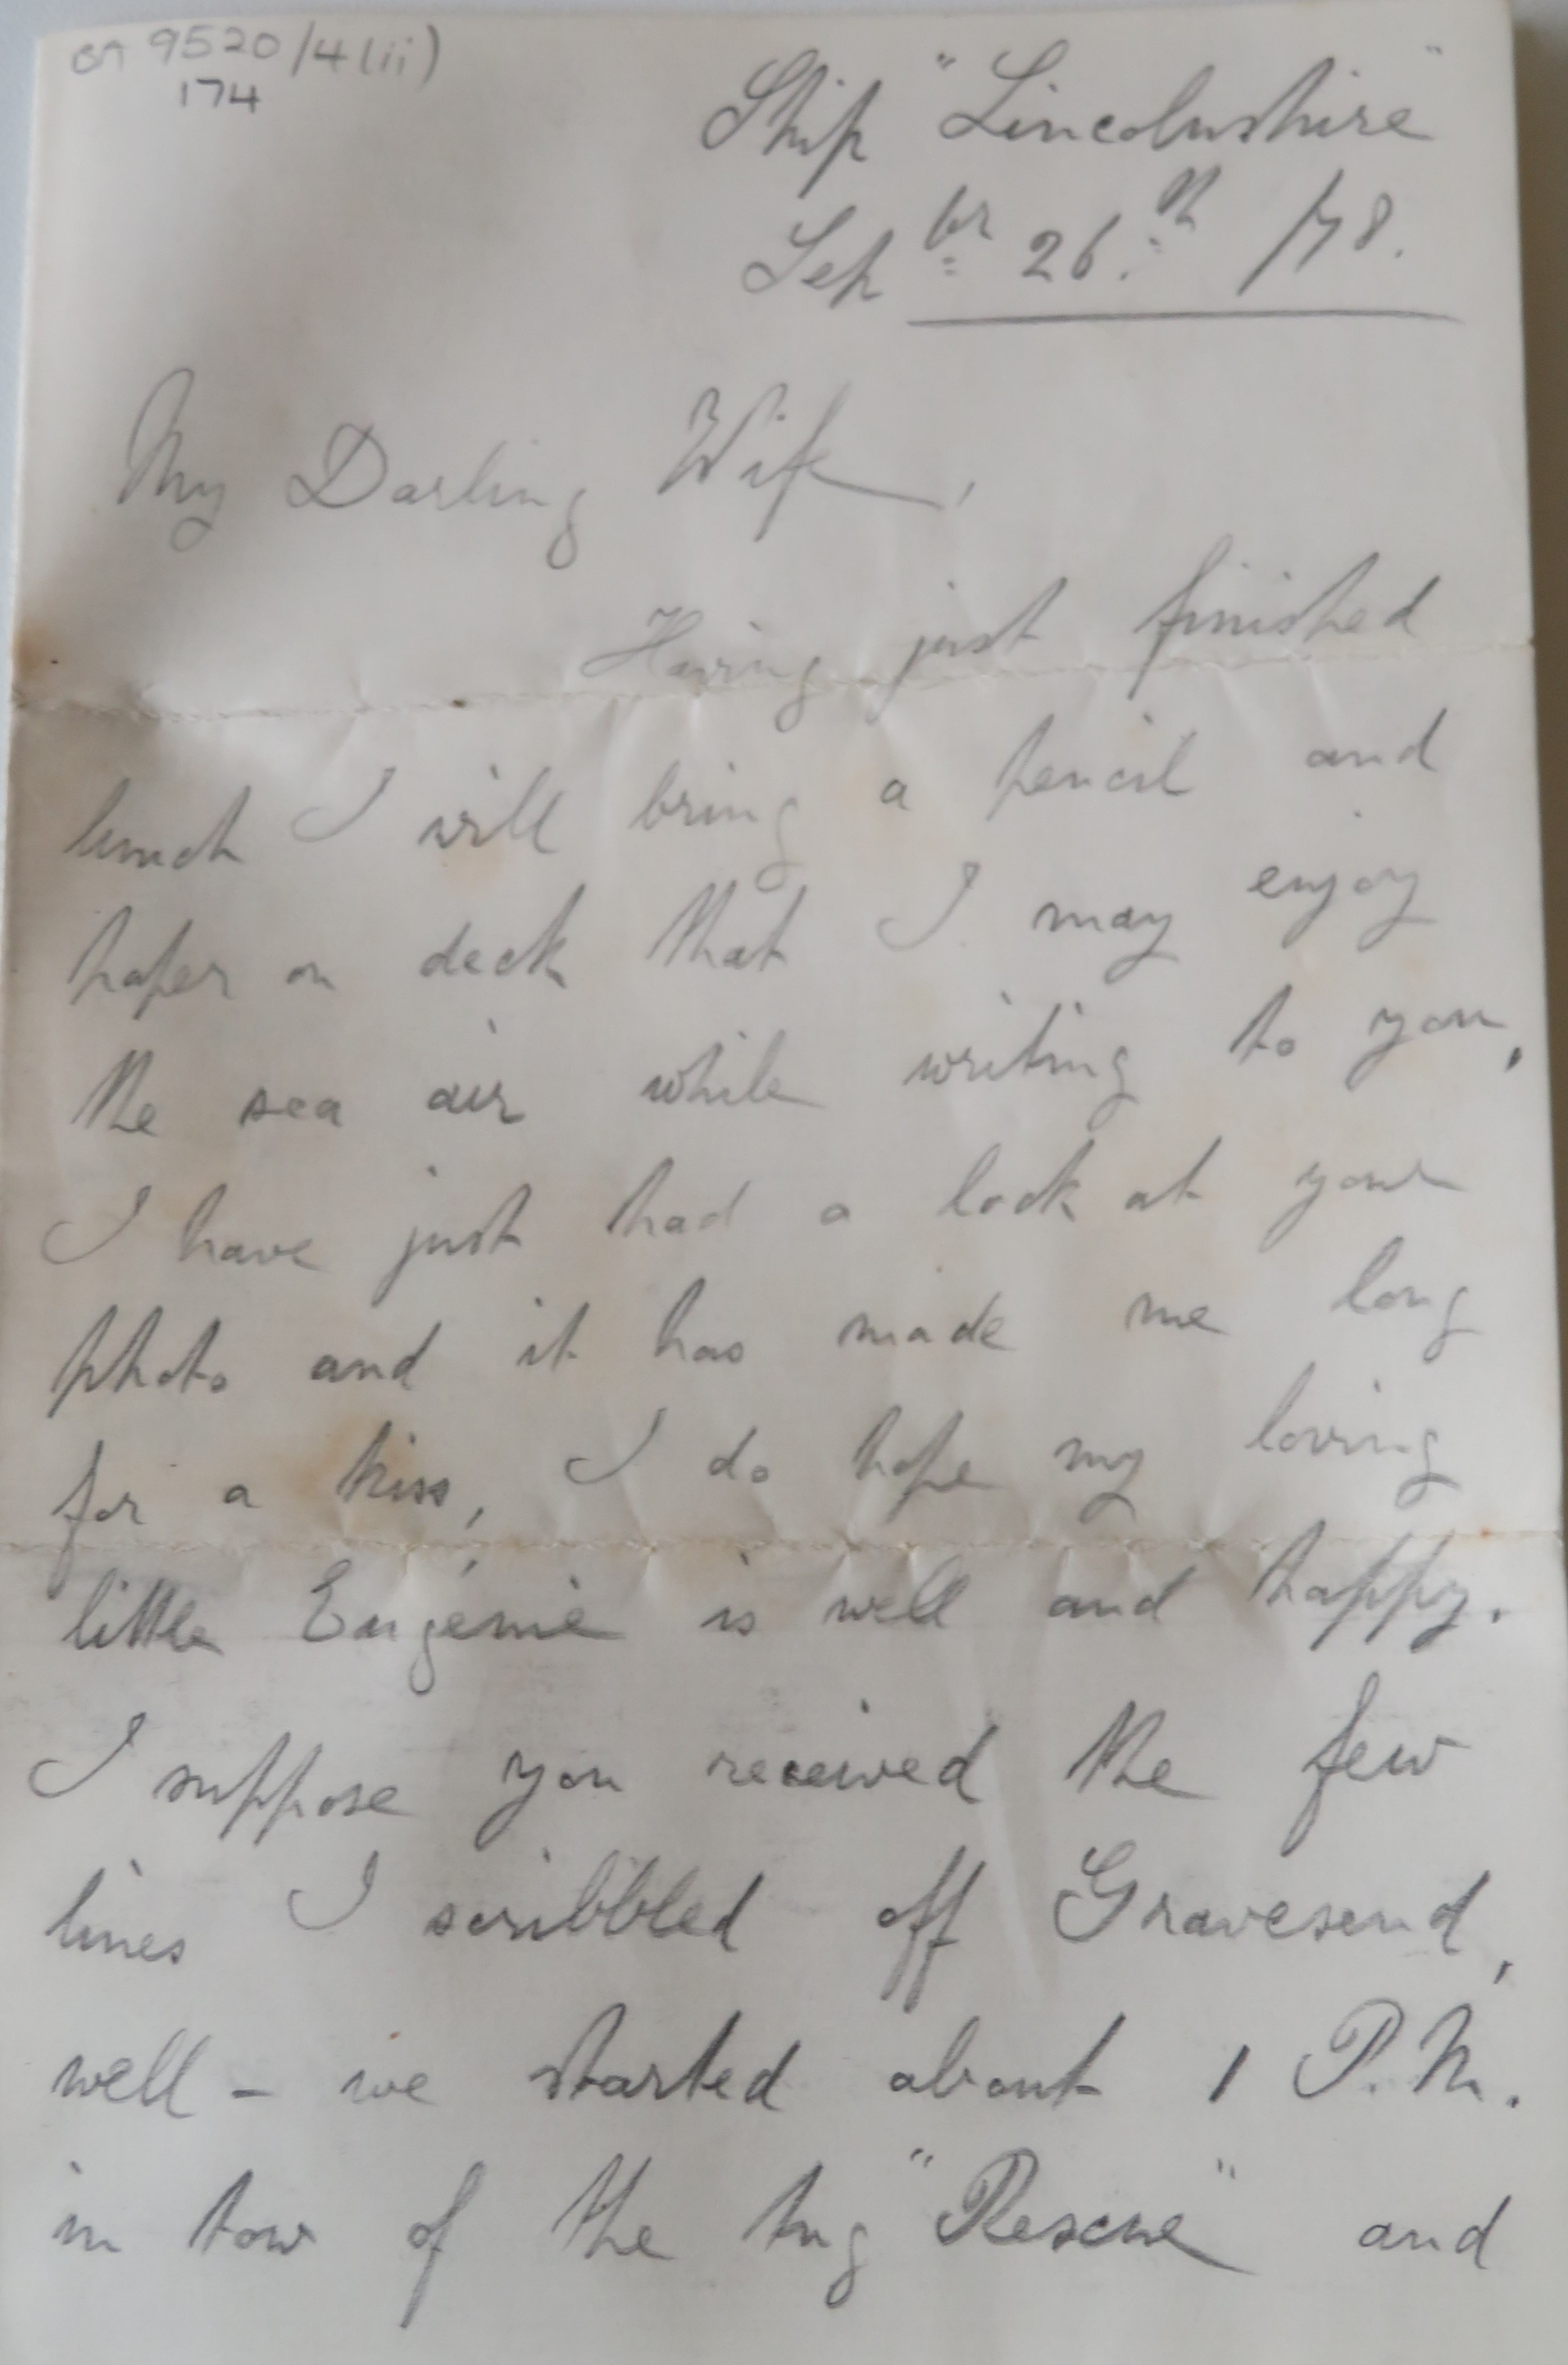 9520/4(ii)
174
Ship "Lincolnshire"
Sepbr 26.th /78.
My Darling Wife,
Having just finished
lunch I will bring a pencil and
paper on deck that I may enjoy
the sea air while writing to you,
I have just had a look at your
photo and it has made me long
for a kiss, I do hope my loving
little Eugénie is well and happy.
I suppose you received the few
lines I scribbled off Gravesend,
well - we started about 1 P.M.
in tow of the tug "Rescue" and